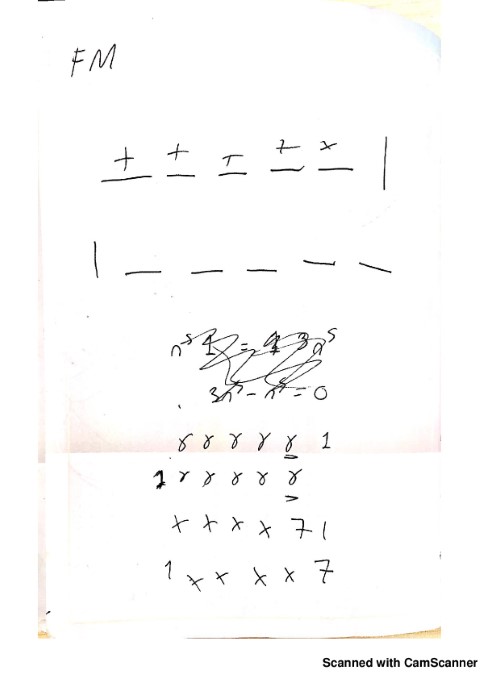 FM
+ + - 7 x |
| _ _ _ _ _
3n⁵ - n⁵ = 0
γ γ γ γ γ 1
1 γ γ γ γ γ
x x x x 7 1
1 x x x x 7
Scanned with CamScanner